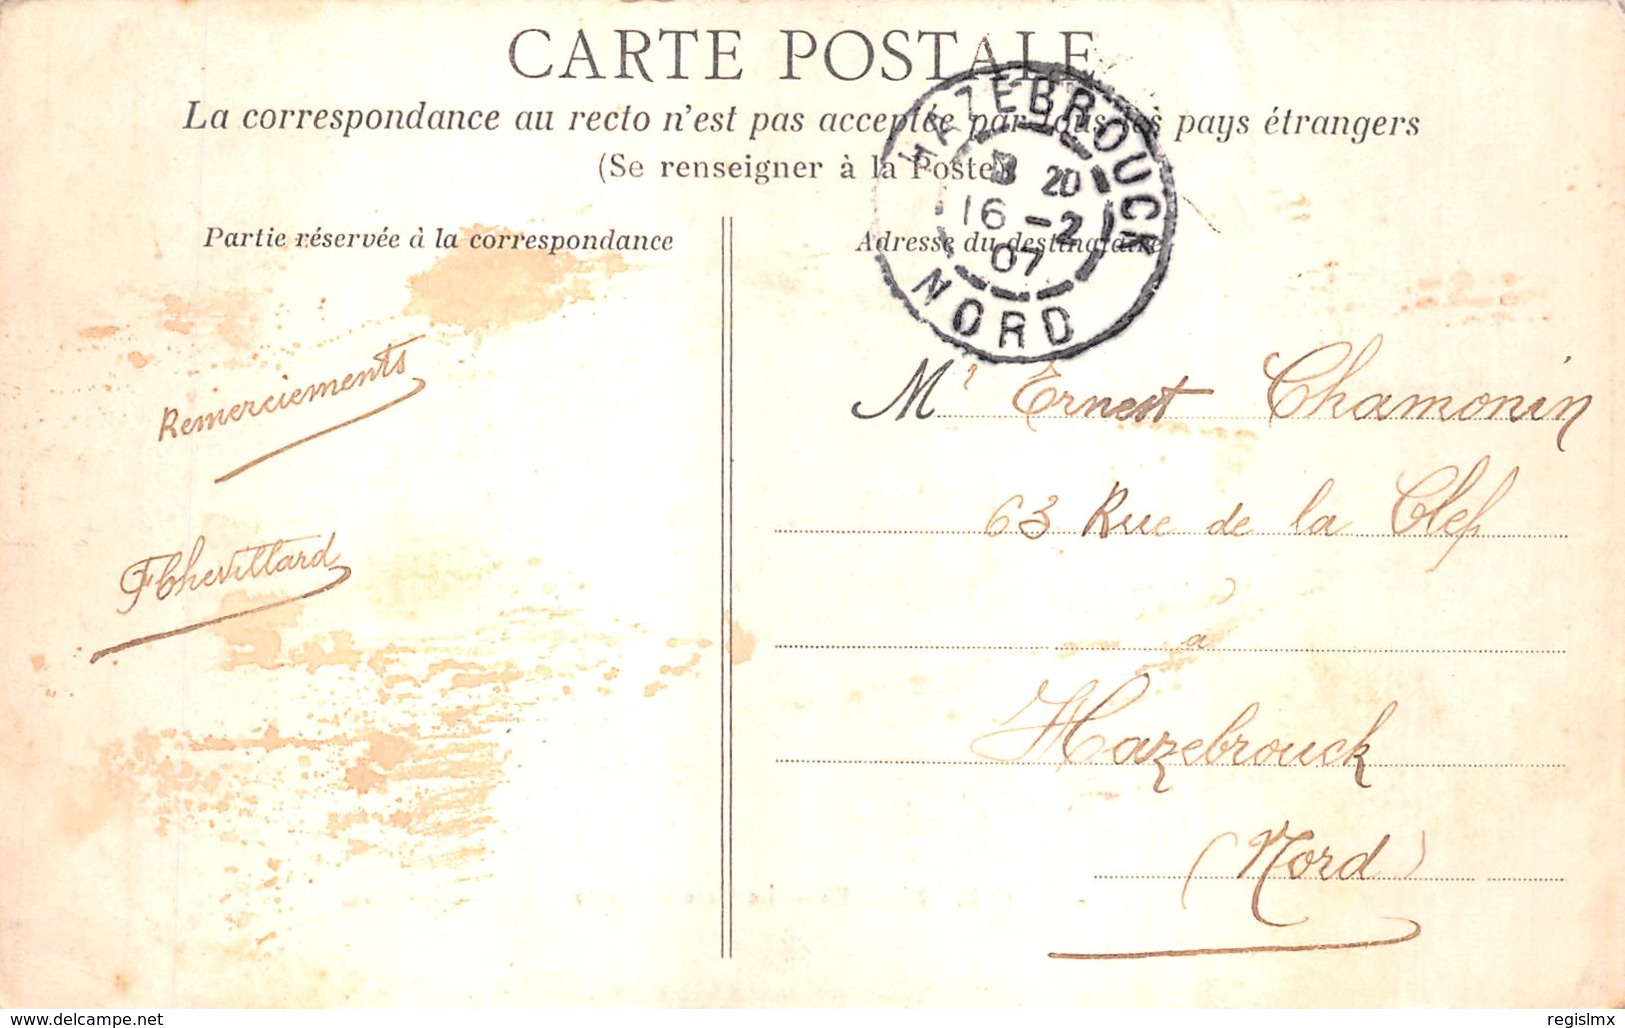 CARTE POSTALE
La correspondance au recto n'est pas acceptée par tous les pays étrangers
(Se renseigner à la Poste)
HAZEBROUCK
20
16 -2
07
NORD
Partie réservée à la correspondance
Adresse du destinataire
Remerciements
FChevillard
Mr Ernest Chamonin
63 Rue de la Clef
à
Hazebrouck
(Nord)
www.delcampe.net
regislmx